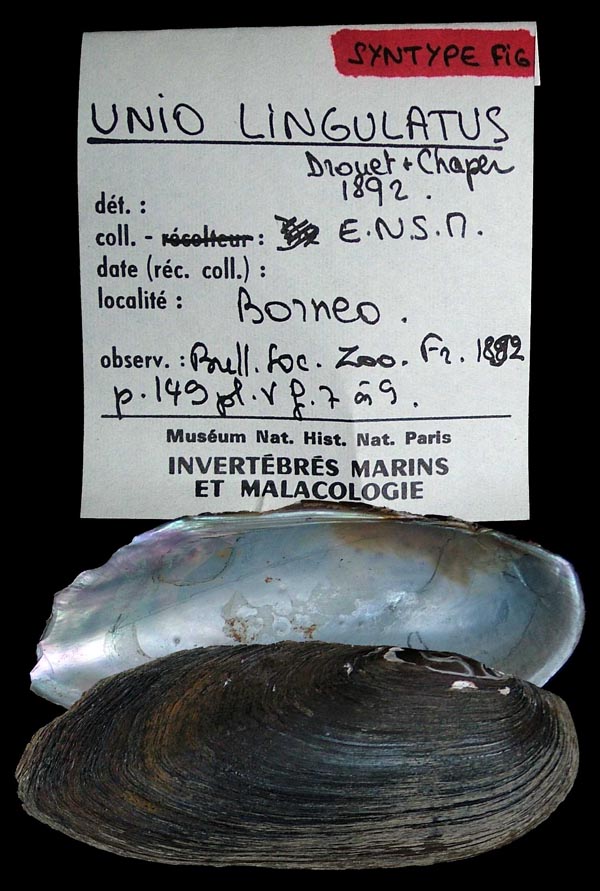 SYNTYPE FIG
UNIO LINGULATUS
Drouet + Chaper
1892.
dét. :
coll. - récolteur : E.N.S.M.
date (réc. coll.) :
localité : Borneo.
observ. : Bull. Soc. Zoo. Fr. 1892
p. 149 pl. V f. 7 à 9.
Muséum Nat. Hist. Nat. Paris
INVERTÉBRÉS MARINS
ET MALACOLOGIE